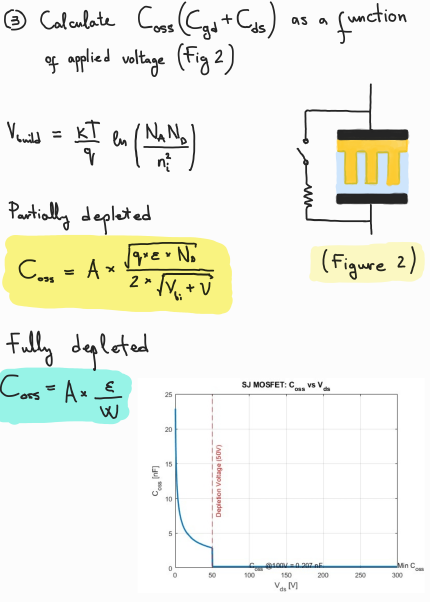 ③ Calculate Coss (Cgd + Cds) as a function
of applied voltage (Fig 2)
Vbuild = kT/q ln (NA ND / ni²)
Partially depleted
Coss = A × √(q × ε × ND) / 2 × √(Vbi + V)
(Figure 2)
Fully depleted
Coss = A × ε/W
SJ MOSFET: Coss vs Vds
25
20
15
10
5
0
Coss [nF]
Depletion Voltage (50V)
Coss @100V = 0.207 nF
Min Coss
0 50 100 150 200 250 300
Vds [V]